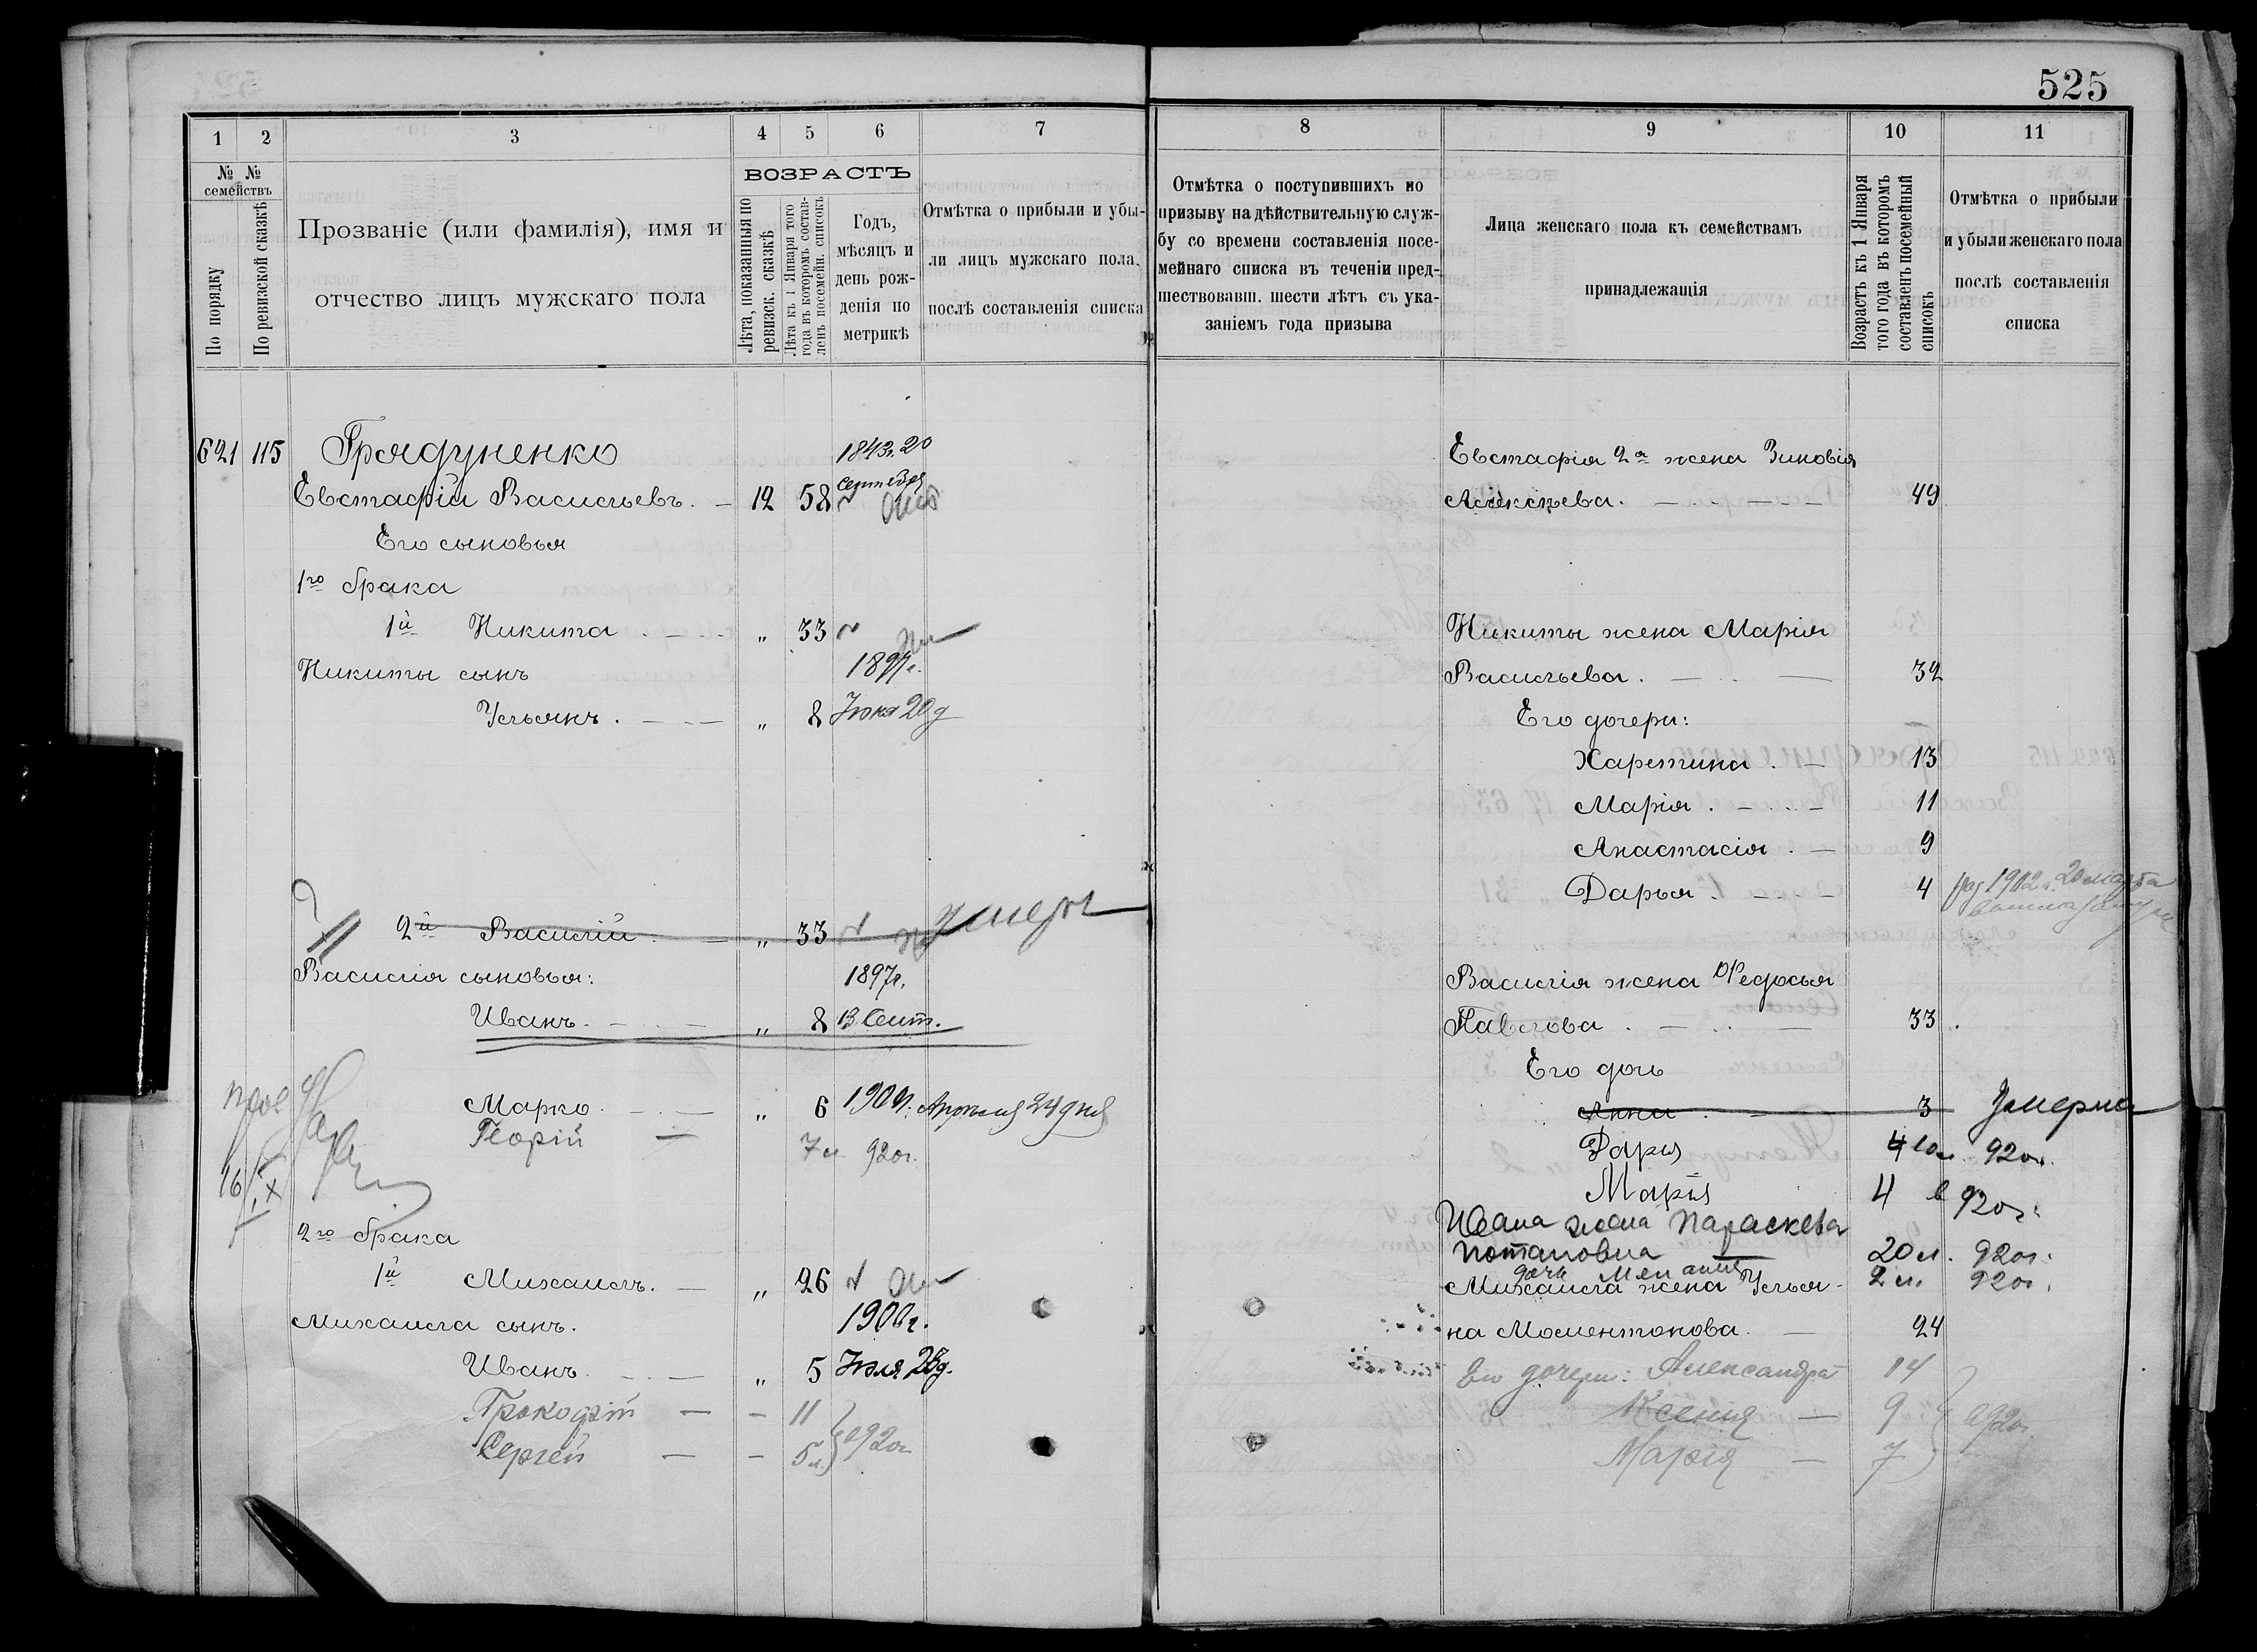 525
1 2 3 4 5 6 7
№ №
семействъ
По порядку
По ревизской сказкѣ
Прозваніе (или фамилія), имя и
отчество лицъ мужскаго пола
ВОЗРАСТЪ
Лѣта, показанныя по
ревизск. сказкѣ
Лѣта къ 1 Января того
года въ которомъ состав-
ленъ посемейн. списокъ
Годъ,
мѣсяцъ и
день рож-
денія по
метрикѣ
Отмѣтка о прибыли и убы-
ли лицъ мужскаго пола,
послѣ составленія списка
621 115 Грядуненко 1843г. 20
сентября
Евстафій Васильевъ. 12 58
Его сыновья
1го брака
1й Никита „ 33
Никиты сынъ
Ульянъ. „ 8 20 д
2й Василій „ 33 Умеръ
Василія сыновья: 1897г.
Иванъ. „ 8 13 Сент.
Марко. „ 6 Апрѣля 24 дня
Георгій 920г.
16
2го брака
1й Михаилъ. „ 26
Михаила сынъ. 1900г.
Иванъ. „ 5 Іюля
Прокофій — — 11
Сергей — — 5 л. 920г
8 9 10 11
Отмѣтка о поступившихъ по
призыву на дѣйствительную служ-
бу со времени составленія посе-
мейнаго списка въ теченіи пред-
шествовавш. шести лѣтъ съ ука-
заніемъ года призыва
Лица женскаго пола къ семействамъ
принадлежащія
Возрастъ къ 1 Января
того года въ которомъ
составленъ посемейный
списокъ
Отмѣтка о прибыли
и убыли женскаго пола
послѣ составленія
списка
Евстафія 2я жена Зиновія
Алексѣева. 49
Никиты жена Марія
Васильева. 32
Его дочери:
Харетина. 13
Марія. 11
Анастасія. 9
Дарья. 4 1902 г. 20 марта
Василія жена Федосья
Павлова. 33
Его дочь
Анна. 3 Умерла
Дарія 920г.
Марія 4 920г.
Ивана жена Параскева
Потаповна 20 л. 920г.
дочь 2 м. 920г.
Михаила жена Улья-
на Момонтонова. 24
Его дочери: Александра 14
Ксенія — 9 920г.
Марія — 7